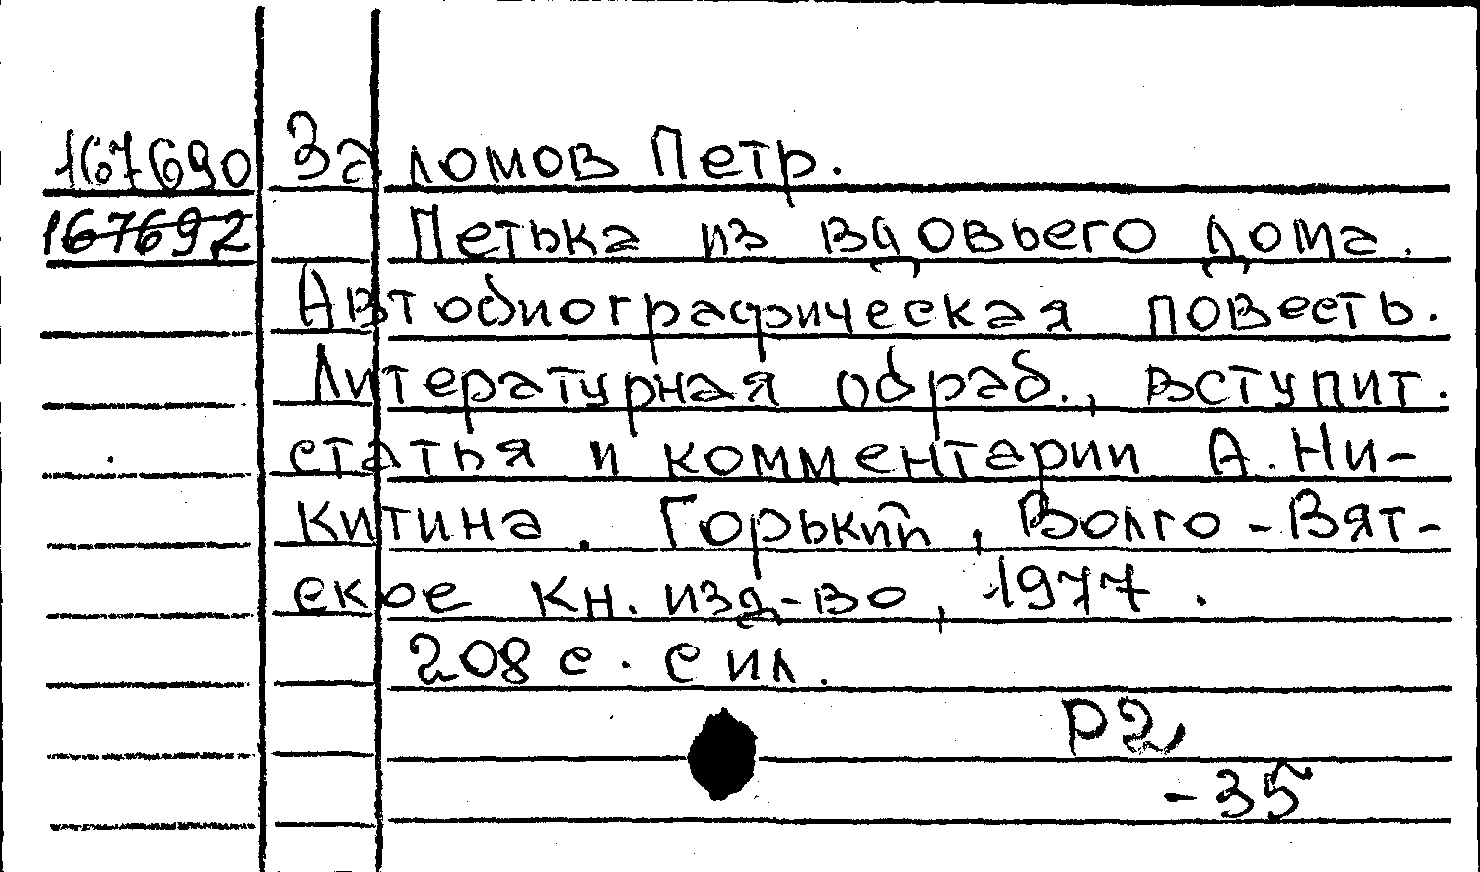 167690 Заломов Петр.
167692 Петька из вдовьего дома.
Автобиографическая повесть.
Литературная обраб., вступит.
статья и комментарии А. Ни-
китина. Горький, Волго-Вят-
ское кн. изд-во, 1977.
208 с. с ил.
Р2
-35